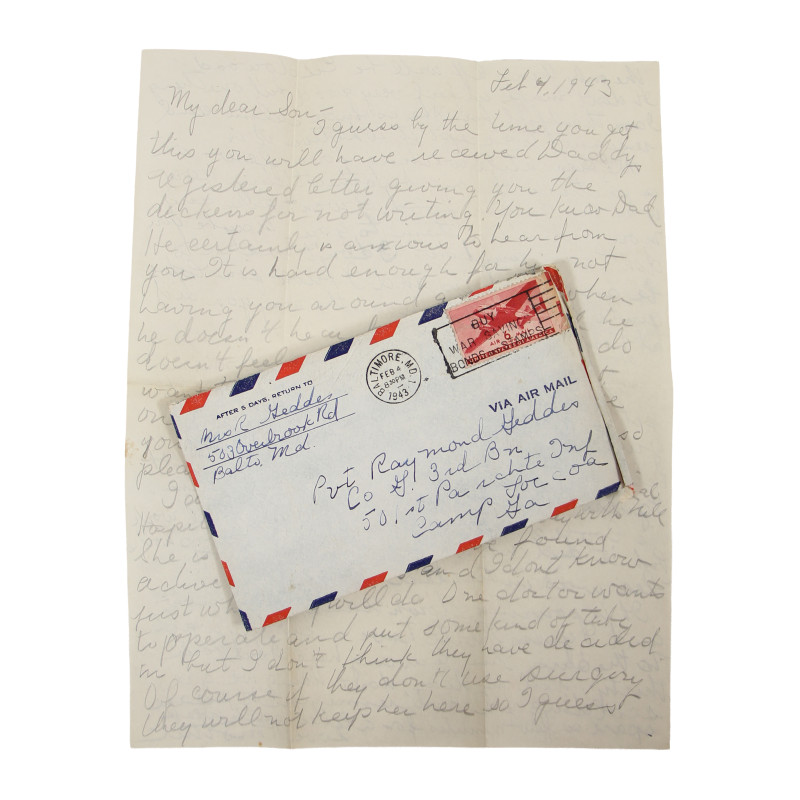 Feb 4, 1943
My dear Son-
I guess by the time you get
this you will have received Daddy
registered letter giving you the
dickens for not writing. You know Dad
He certainly is anxious to hear from
you It is hard enough for not
having you around when
he doesn't he
doesn't feel do
on
you
plea so
I
Hospi
She is found
active and I don't know
just will do. One doctor wants
to operate and put some kind of tube
in but I don't think they have decided.
Of course if they don't use surgery
they will not keep her here so I guess
AFTER 5 DAYS, RETURN TO
Mrs R Geddes
503 Overbrook Rd
Balto, Md.
BALTIMORE, MD. 1
FEB 4
830PM
1943
BUY
WAR SAVINGS
BONDS STAMPS
6
VIA AIR MAIL
Pvt Raymond Geddes
Co G. 3rd Bn
501st Parchte Inf
Camp Toccoa
Ga